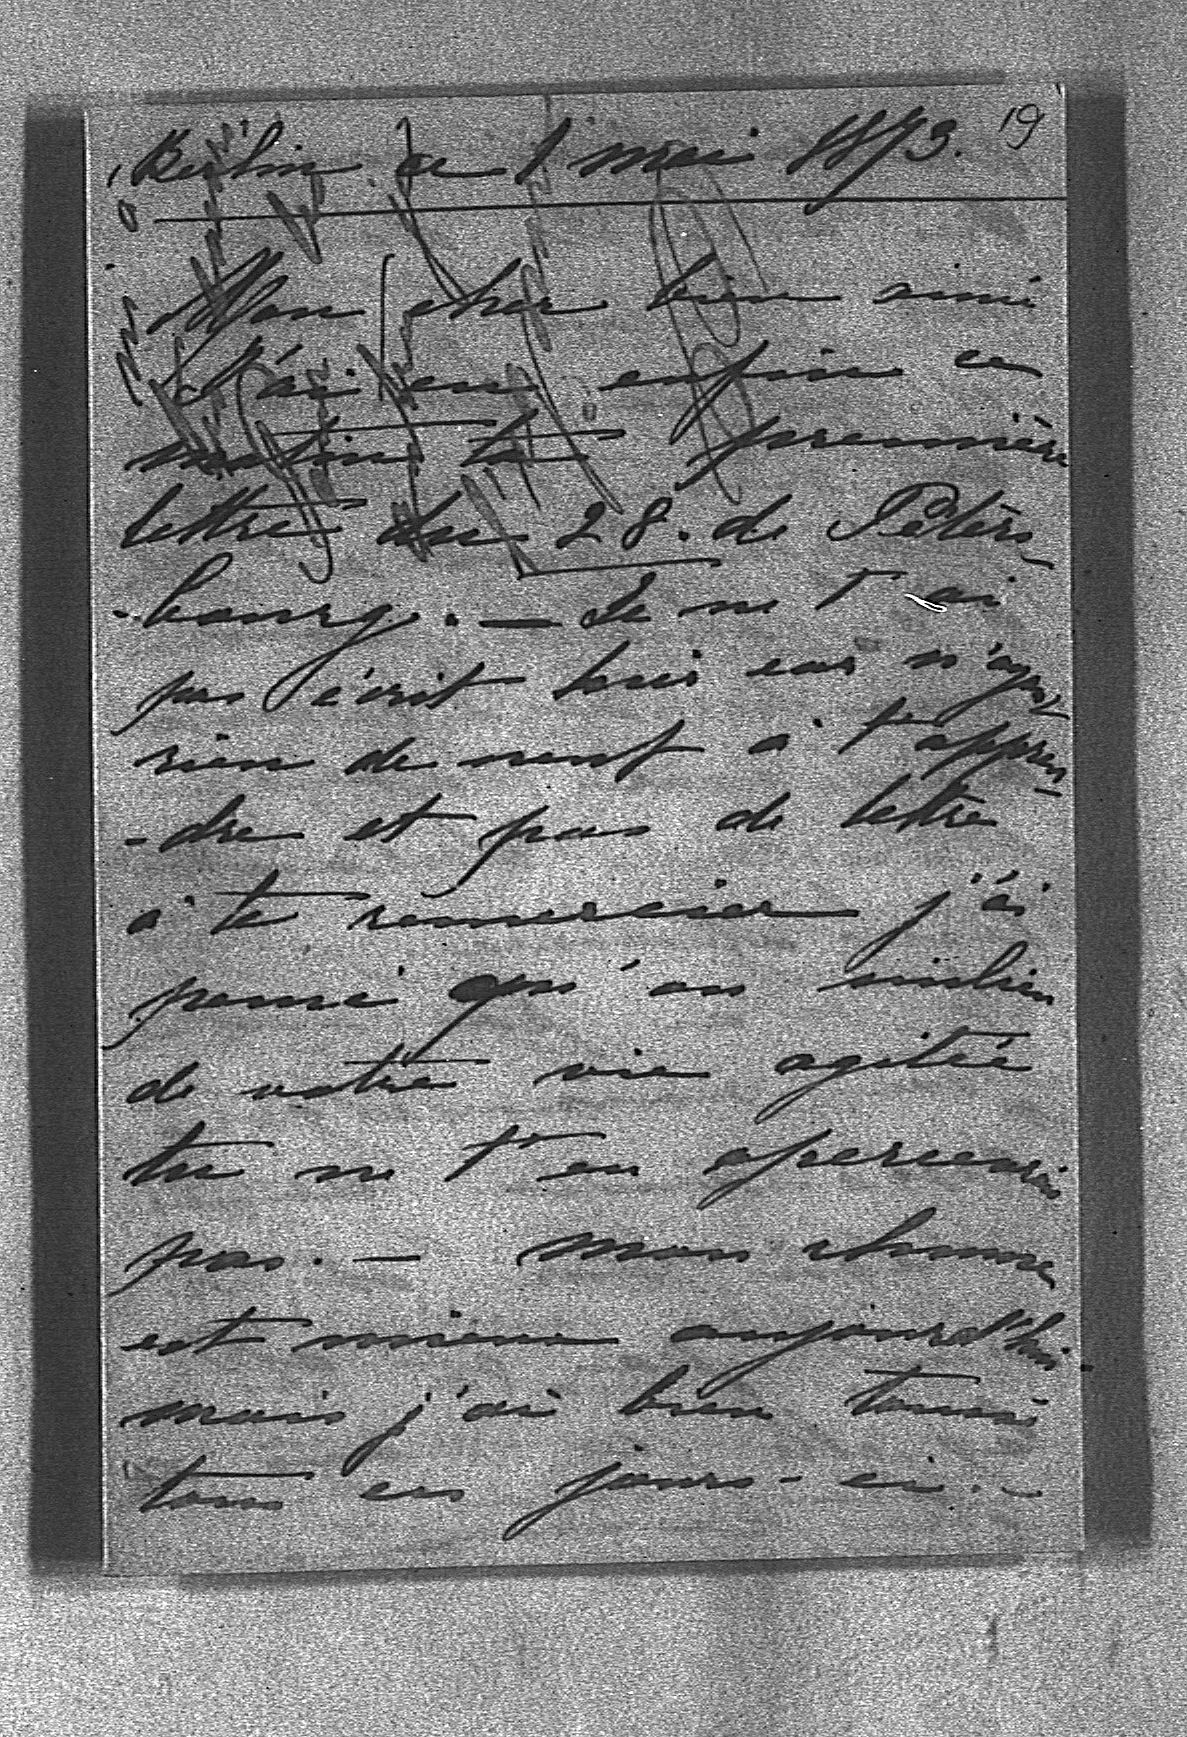 19
Berlin ce 1 mai 1873.
Mon cher bien aimé
J'ai eu enfin ce
matin ta première
lettre du 28. de Péters-
-bourg. — Je ne t'ai
pas écrit hier car n'ayt
rien de neuf à t'appren-
-dre et pas de lettre
à te remercier j'ai
pensé qu'au milieu
de votre vie agitée
tu ne t'en apercevrais
pas. — Mon rhume
est mieux aujourd'hui.
mais j'ai bien toussé
tous ces jours-ci. —